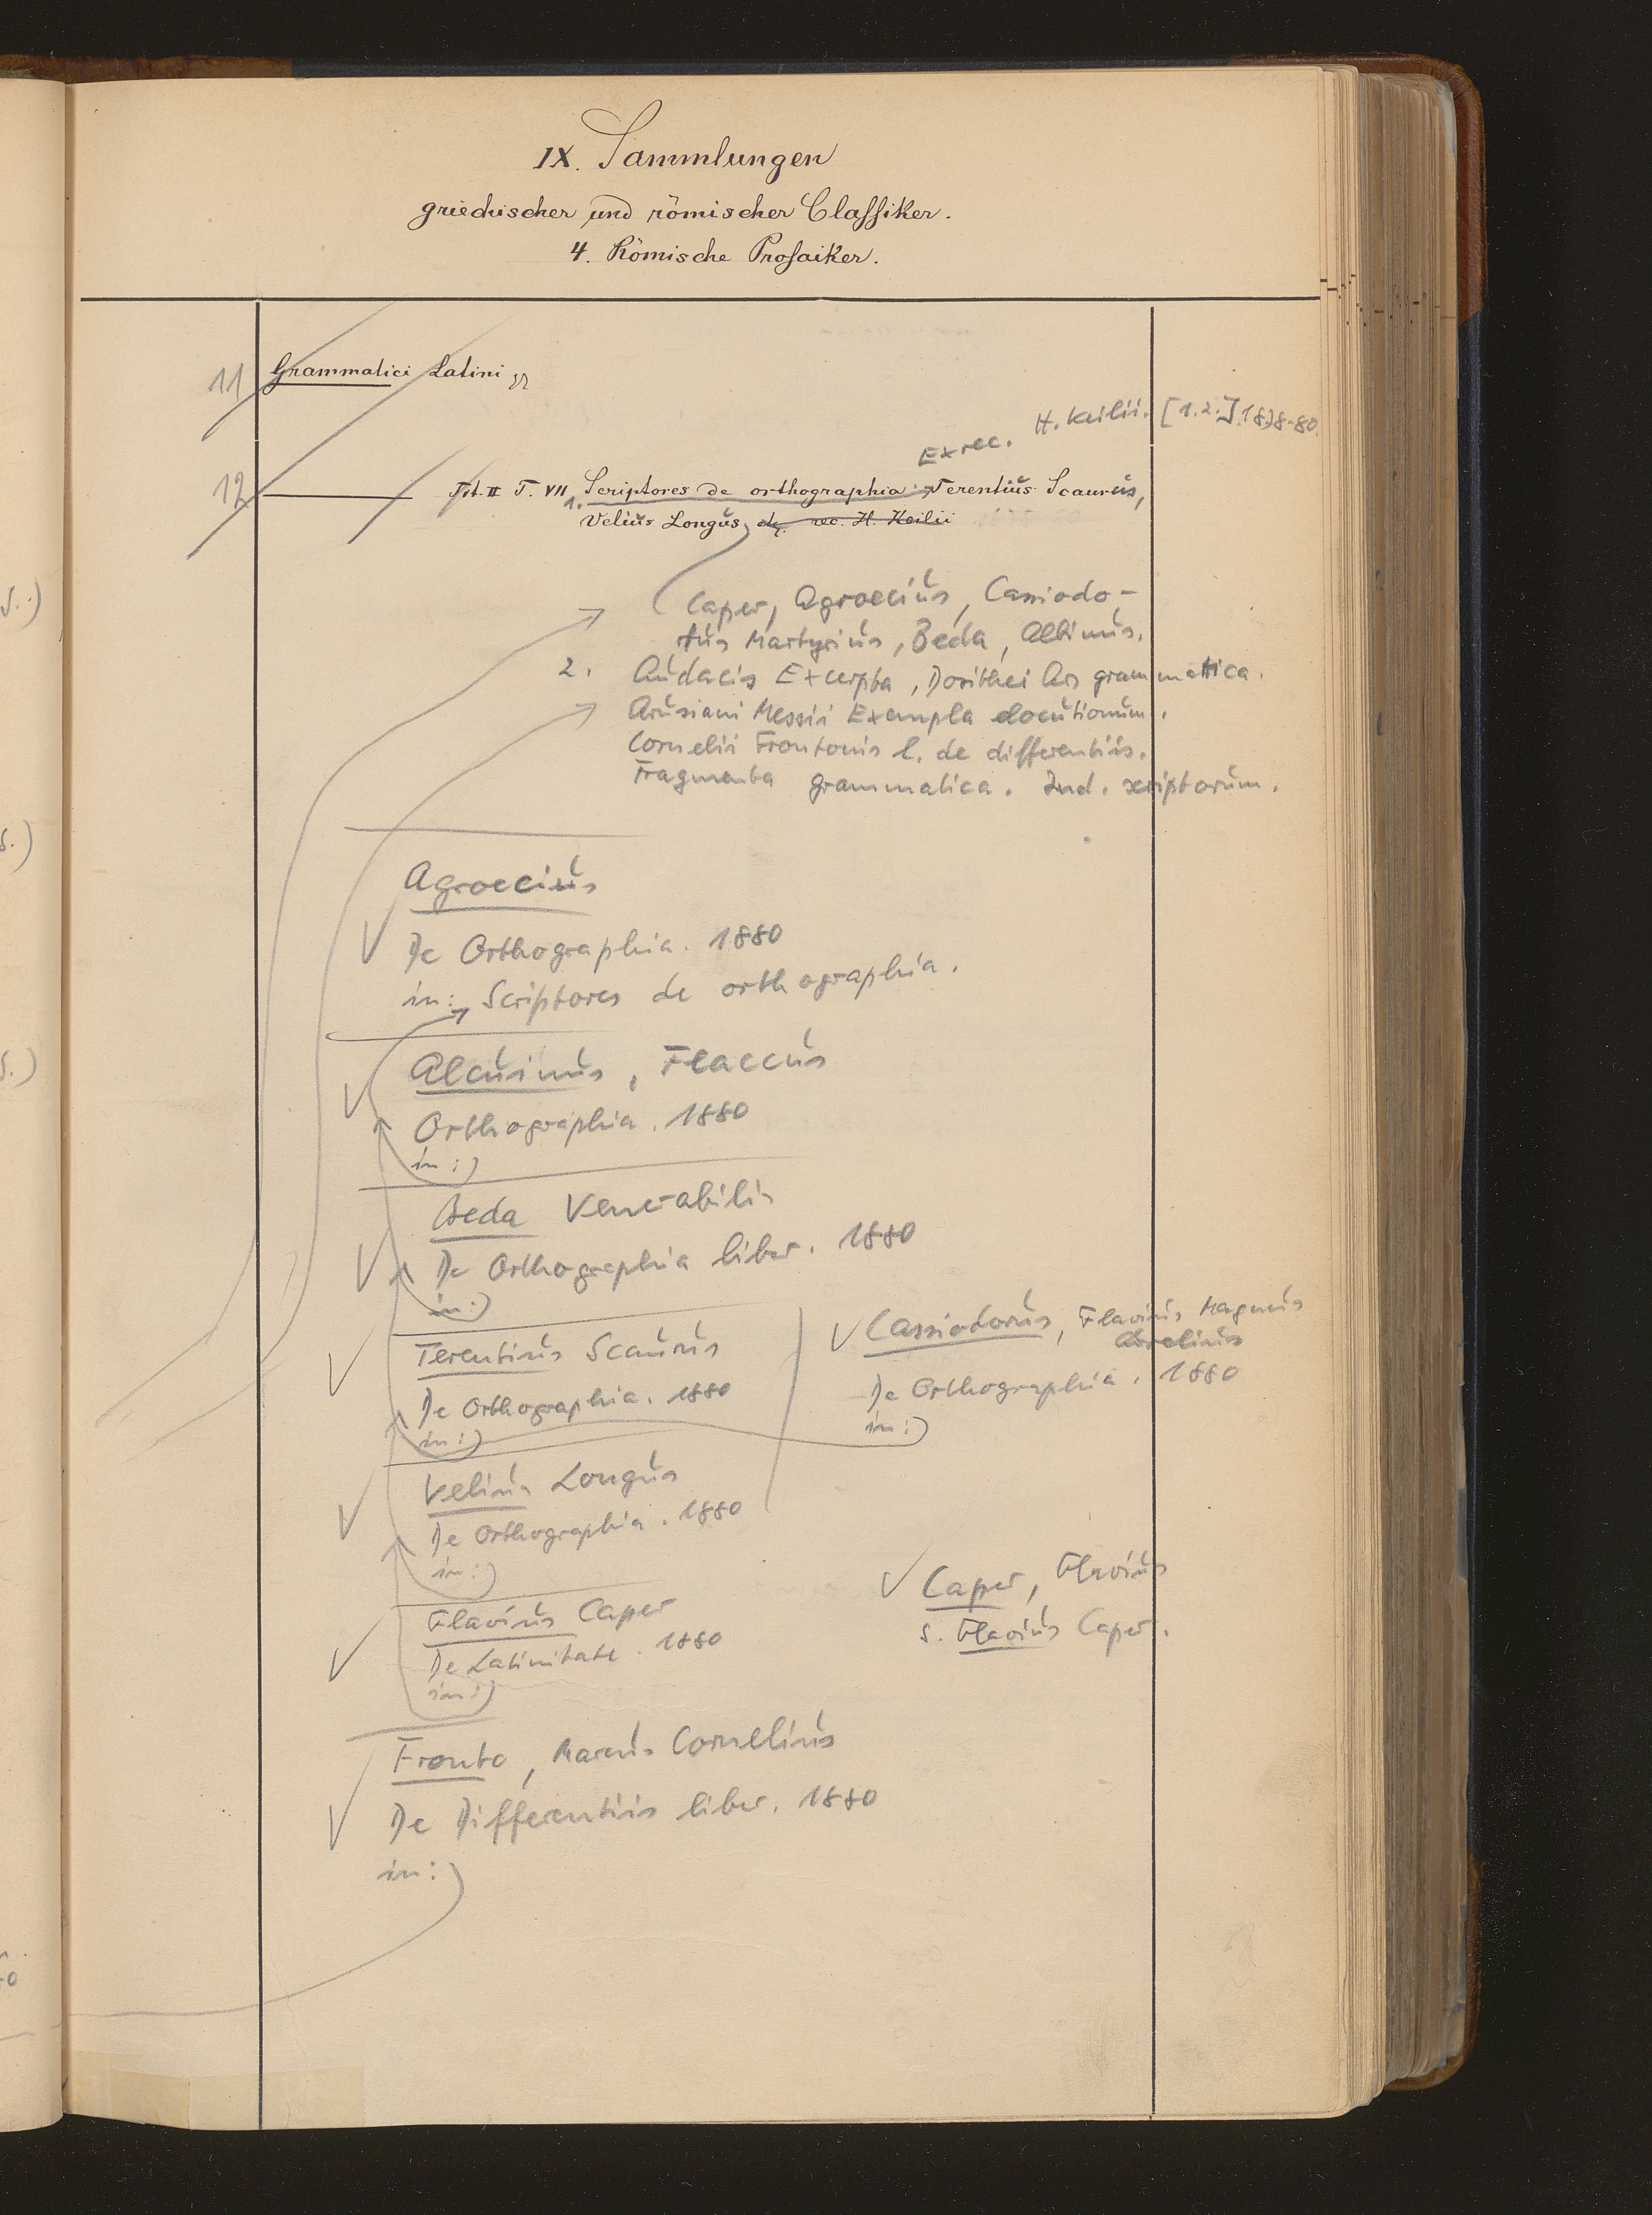 IX. Sammlungen
griechischer und römischer Classiker.
4. Römische Prosaiker.
11 Grammatici Latini
Ex rec. H. Keilii. [1.2.] 1878-80.
12 ——— T. VII 1. Scriptores de orthographia: Terentius Scaurus,
Velius Longus, rec. H. Keilii
Caper, Agroecius, Cassiodo-
rus Martyrius, Beda, Albinus.
2. Audacis Excerpta, Dosithei Ars grammatica.
Arusiani Messii Exempla elocutionum.
Cornelii Frontonis l. de differentiis.
Fragmenta grammatica. Ind. scriptorum.
Agroecius
De Orthographia. 1880
in: Scriptores de orthographia.
Alcuinus, Flaccus
Orthographia. 1880
in:
Beda Venerabilis
De Orthographia liber. 1880
in:
Terentius Scaurus
De Orthographia. 1880
in:
Cassiodorus, Flavius Magnus
Aurelius
De Orthographia. 1880
in:
Velius Longus
De Orthographia. 1880
in:
Flavius Caper
De Latinitate. 1880
in:
Caper, Flavius
s. Flavius Caper.
Fronto, Marcus Cornelius
De Differentiis liber. 1880
in: